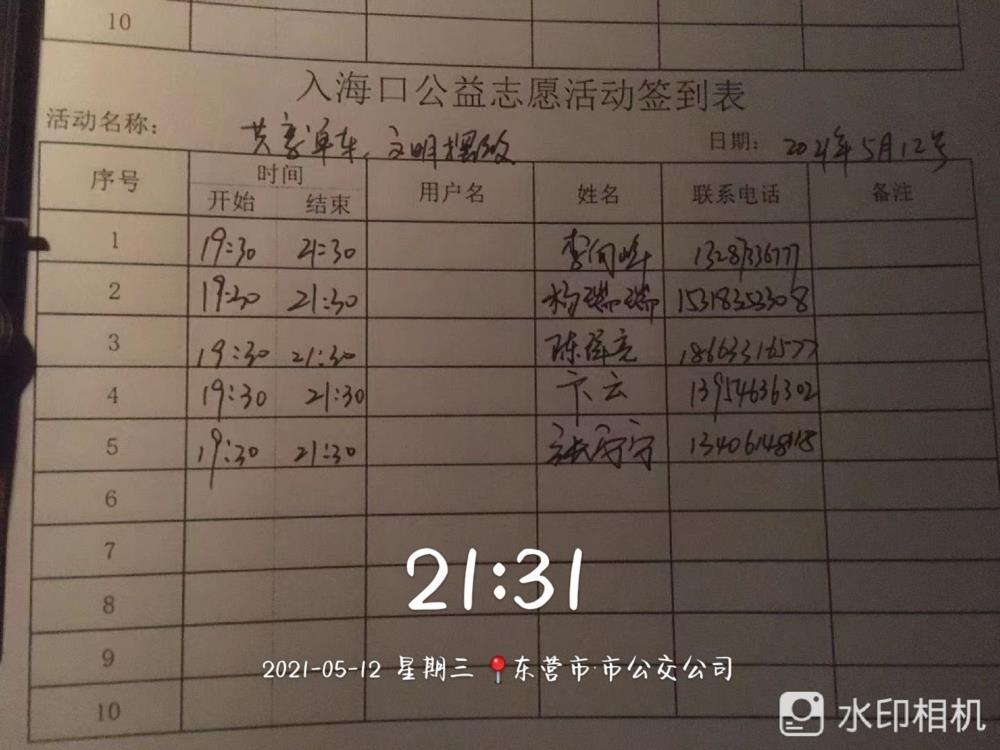 10
入海口公益志愿活动签到表
活动名称： 共享单车，文明摆放 日期： 2021年5月12号
序号 时间 用户名 姓名 联系电话 备注
开始 结束
1 19:30 21:30 李向峰 13287336777
2 19:30 21:30 杨瑞瑞 15318353308
3 19:30 21:30 陈泽亮 18663316577
4 19:30 21:30 卞云 13954636302
5 19:30 21:30 张宁宁 13406148118
6
7
8
9
10
21:31
2021-05-12 星期三 📍东营市·市公交公司
水印相机